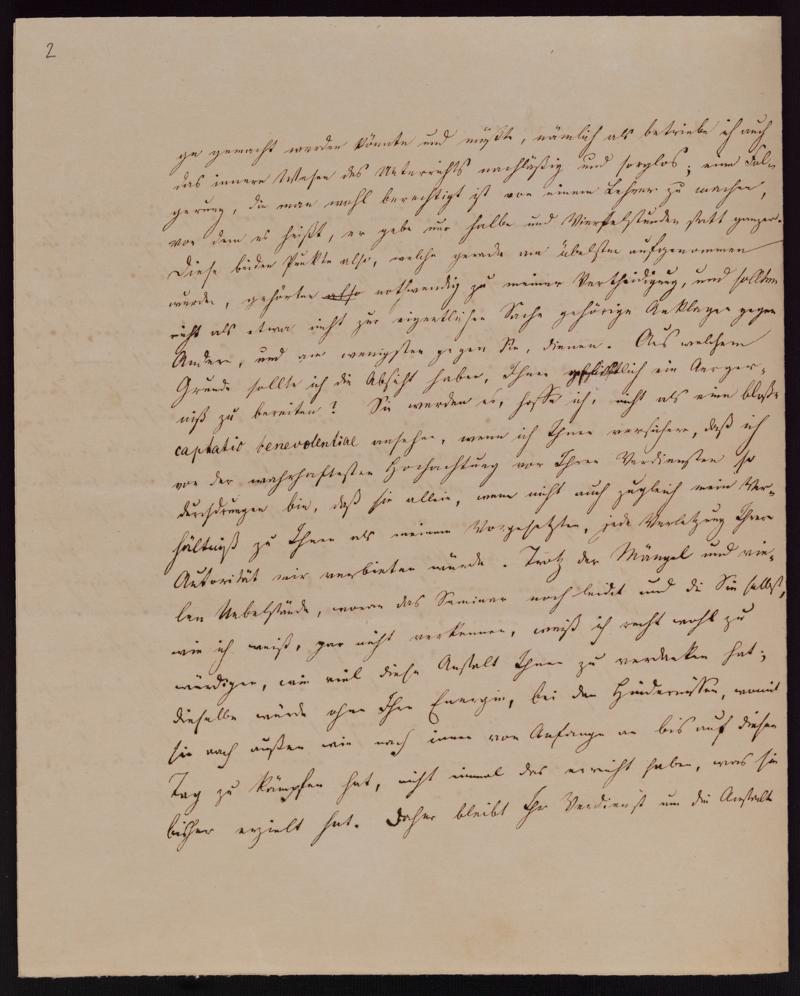 2
ge gemacht werden könnte und müßte, nämlich als betriebe ich auch
das innere Wesen des Unterrichts nachläßig und sorglos; eine Fol-
gerung, die man wohl berechtigt ist von einem Lehrer zu machen,
von dem es heißt, er gebe nur halbe und Viertelstunden statt ganzer.
Diese beiden Punkte also, welche gerade am übelsten aufgenommen
wurden, gehörten also nothwendig zu meiner Vertheidigung, und sollten
nicht als etwa nicht zur eigentlichen Sache gehörige Anklagen gegen
Andere, und am wenigsten gegen Sie, dienen. Aus welchem
Grunde sollte ich die Absicht haben, Ihnen ein Aerger-
niß zu bereiten? Sie werden es, hoffe ich, nicht als eine bloße
captatio benevolentiae ansehen, wenn ich Ihnen versichere, daß ich
von der wahrhaftesten Hochachtung vor Ihren Verdiensten so
durchdrungen bin, daß sie allein, wenn nicht auch zugleich mein Ver-
hältniß zu Ihnen als meinem Vorgesetzten, jede Verletzung Ihrer
Autorität mir verbieten würde. Trotz der Mängel und vie-
len Uebelstände, woran das Seminar noch leidet und die Sie selbst,
wie ich weiß, gar nicht verkennen, weiß ich recht wohl zu
würdigen, wie viel diese Anstalt Ihnen zu verdanken hat;
dieselbe würde ohne Ihre Energie, bei den Hindernissen, womit
sie nach außen wie nach innen von Anfange an bis auf diesen
Tag zu kämpfen hat, nicht einmal das erreicht haben, was sie
bisher erzielt hat. Daher bleibt Ihr Verdienst um die Anstalt